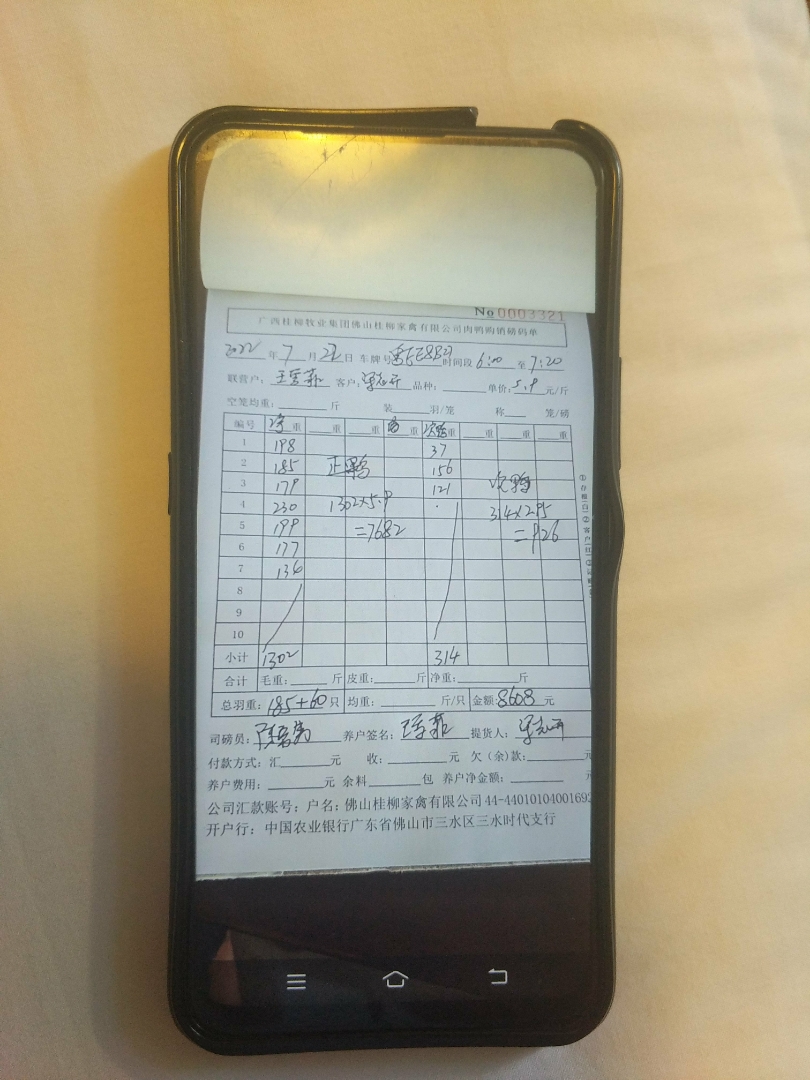 No 0003321
广西桂柳牧业集团佛山桂柳家禽有限公司肉鸭购销磅码单
2022年7月22日 车牌号 粤EE8B27 时间段 6:00 至 7:20
联营户: 客户: 品种: 单价: 5.9 元/斤
空笼均重: 斤 装 羽/笼 称 笼/磅
编号 净重 重 重 重 次鸭重 重 重 重
1 198 37
2 185 正鸭 156
3 179 121 次鸭
4 230 1302×5.9 314×2.95
5 199 =7682 =926
6 177
7 134
8
9
10
小计 1302 314
合计 毛重: 斤 皮重: 斤 净重: 斤
总羽重: 185+60 只 均重: 斤/只 金额: 8608 元
司磅员: 养户签名: 提货人:
付款方式: 汇 元 收: 元 欠(余)款:
养户费用: 元 余料 包 养户净金额: 元
公司汇款账号: 户名: 佛山桂柳家禽有限公司 44-44010104001692
开户行: 中国农业银行广东省佛山市三水区三水时代支行